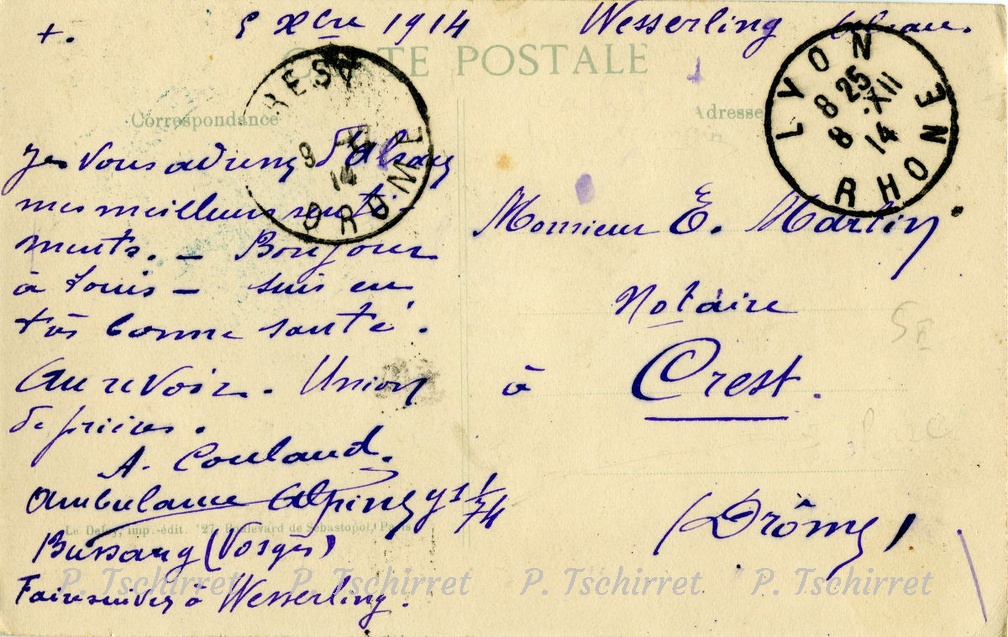 +. 5 Xbre 1914 Wesserling Alsace.
CARTE POSTALE
Correspondance
Adresse
CREST
8 XII
14
DROME
LYON
8 25 XII
8 14
RHONE
Je vous adresse d'Alsace
mes meilleurs senti-
ments. – Bonjour
à tous – suis en
très bonne santé.
Au revoir. Union
de prières.
A. Coulaud.
Ambulance Alpine 1/74
Le Deley, imp.-édit. 127, Boulevard de Sébastopol, Paris
Bussang (Vosges)
Faire suivre à Wesserling.
Monsieur E. Martin
Notaire
à Crest.
(Drôme)
P. Tschirret P. Tschirret P. Tschirret P. Tschirret